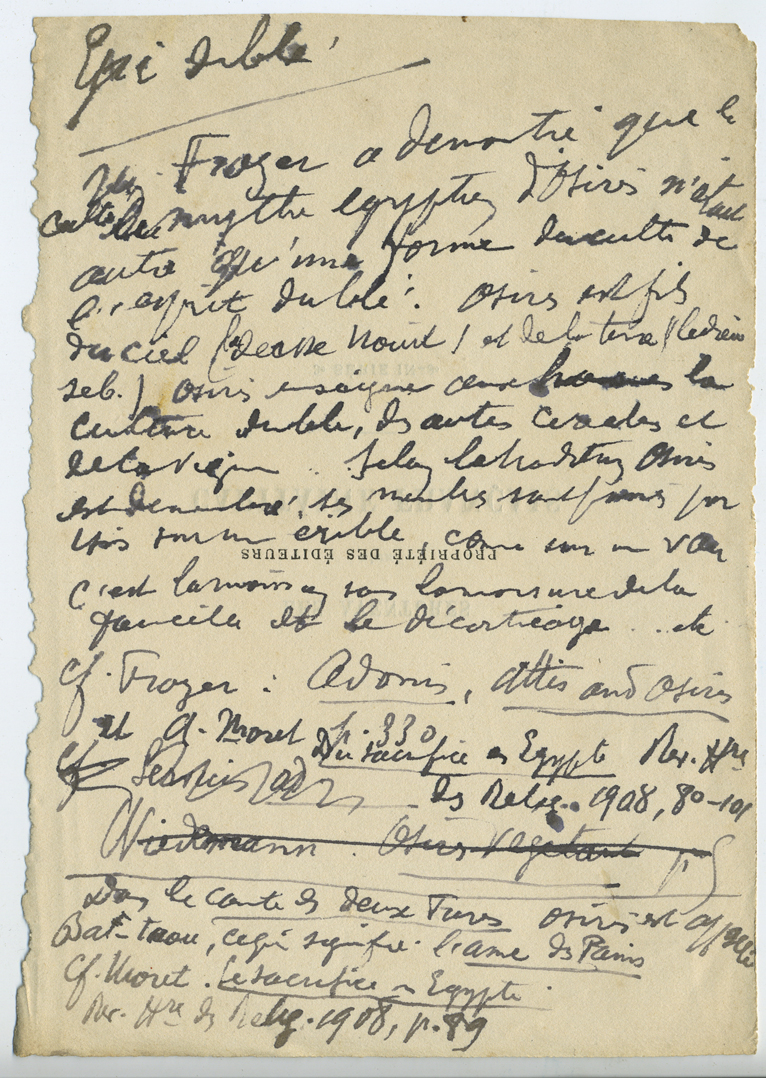 Epi de blé
Mr. Frazer a démontré que le
culte le mythe égyptien d'Osiris n'était
autre qu'une forme du culte de
l'"esprit du blé". Osiris est fils
du ciel (la déesse Nouit) et de la terre (le dieu
Seb.) Osiris enseigne aux hommes la
culture du blé, des autres céréales et
de la vigne. Selon la tradition Osiris
est démembré, ses membres sont par
Isis sur un crible, comme sur un van
c'est la moisson sous la morsure de la
faucille et le décorticage ... etc
PROPRIÉTÉ DES ÉDITEURS
cf. Frazer : Adonis, Attis and Osiris
p. 330
et A. Moret Du sacrifice en Egypte Rev. Hre
des Relig. 1908, 80-101
Wiedemann. Osiris végétant p
Dans le conte des deux Frères Osiris est appelé
Bat-taou, ce qui signifie l'âme des Pains
Cf. Moret. Le sacrifice en Egypte.
Rev. Hre des Relig. 1908, p. 89